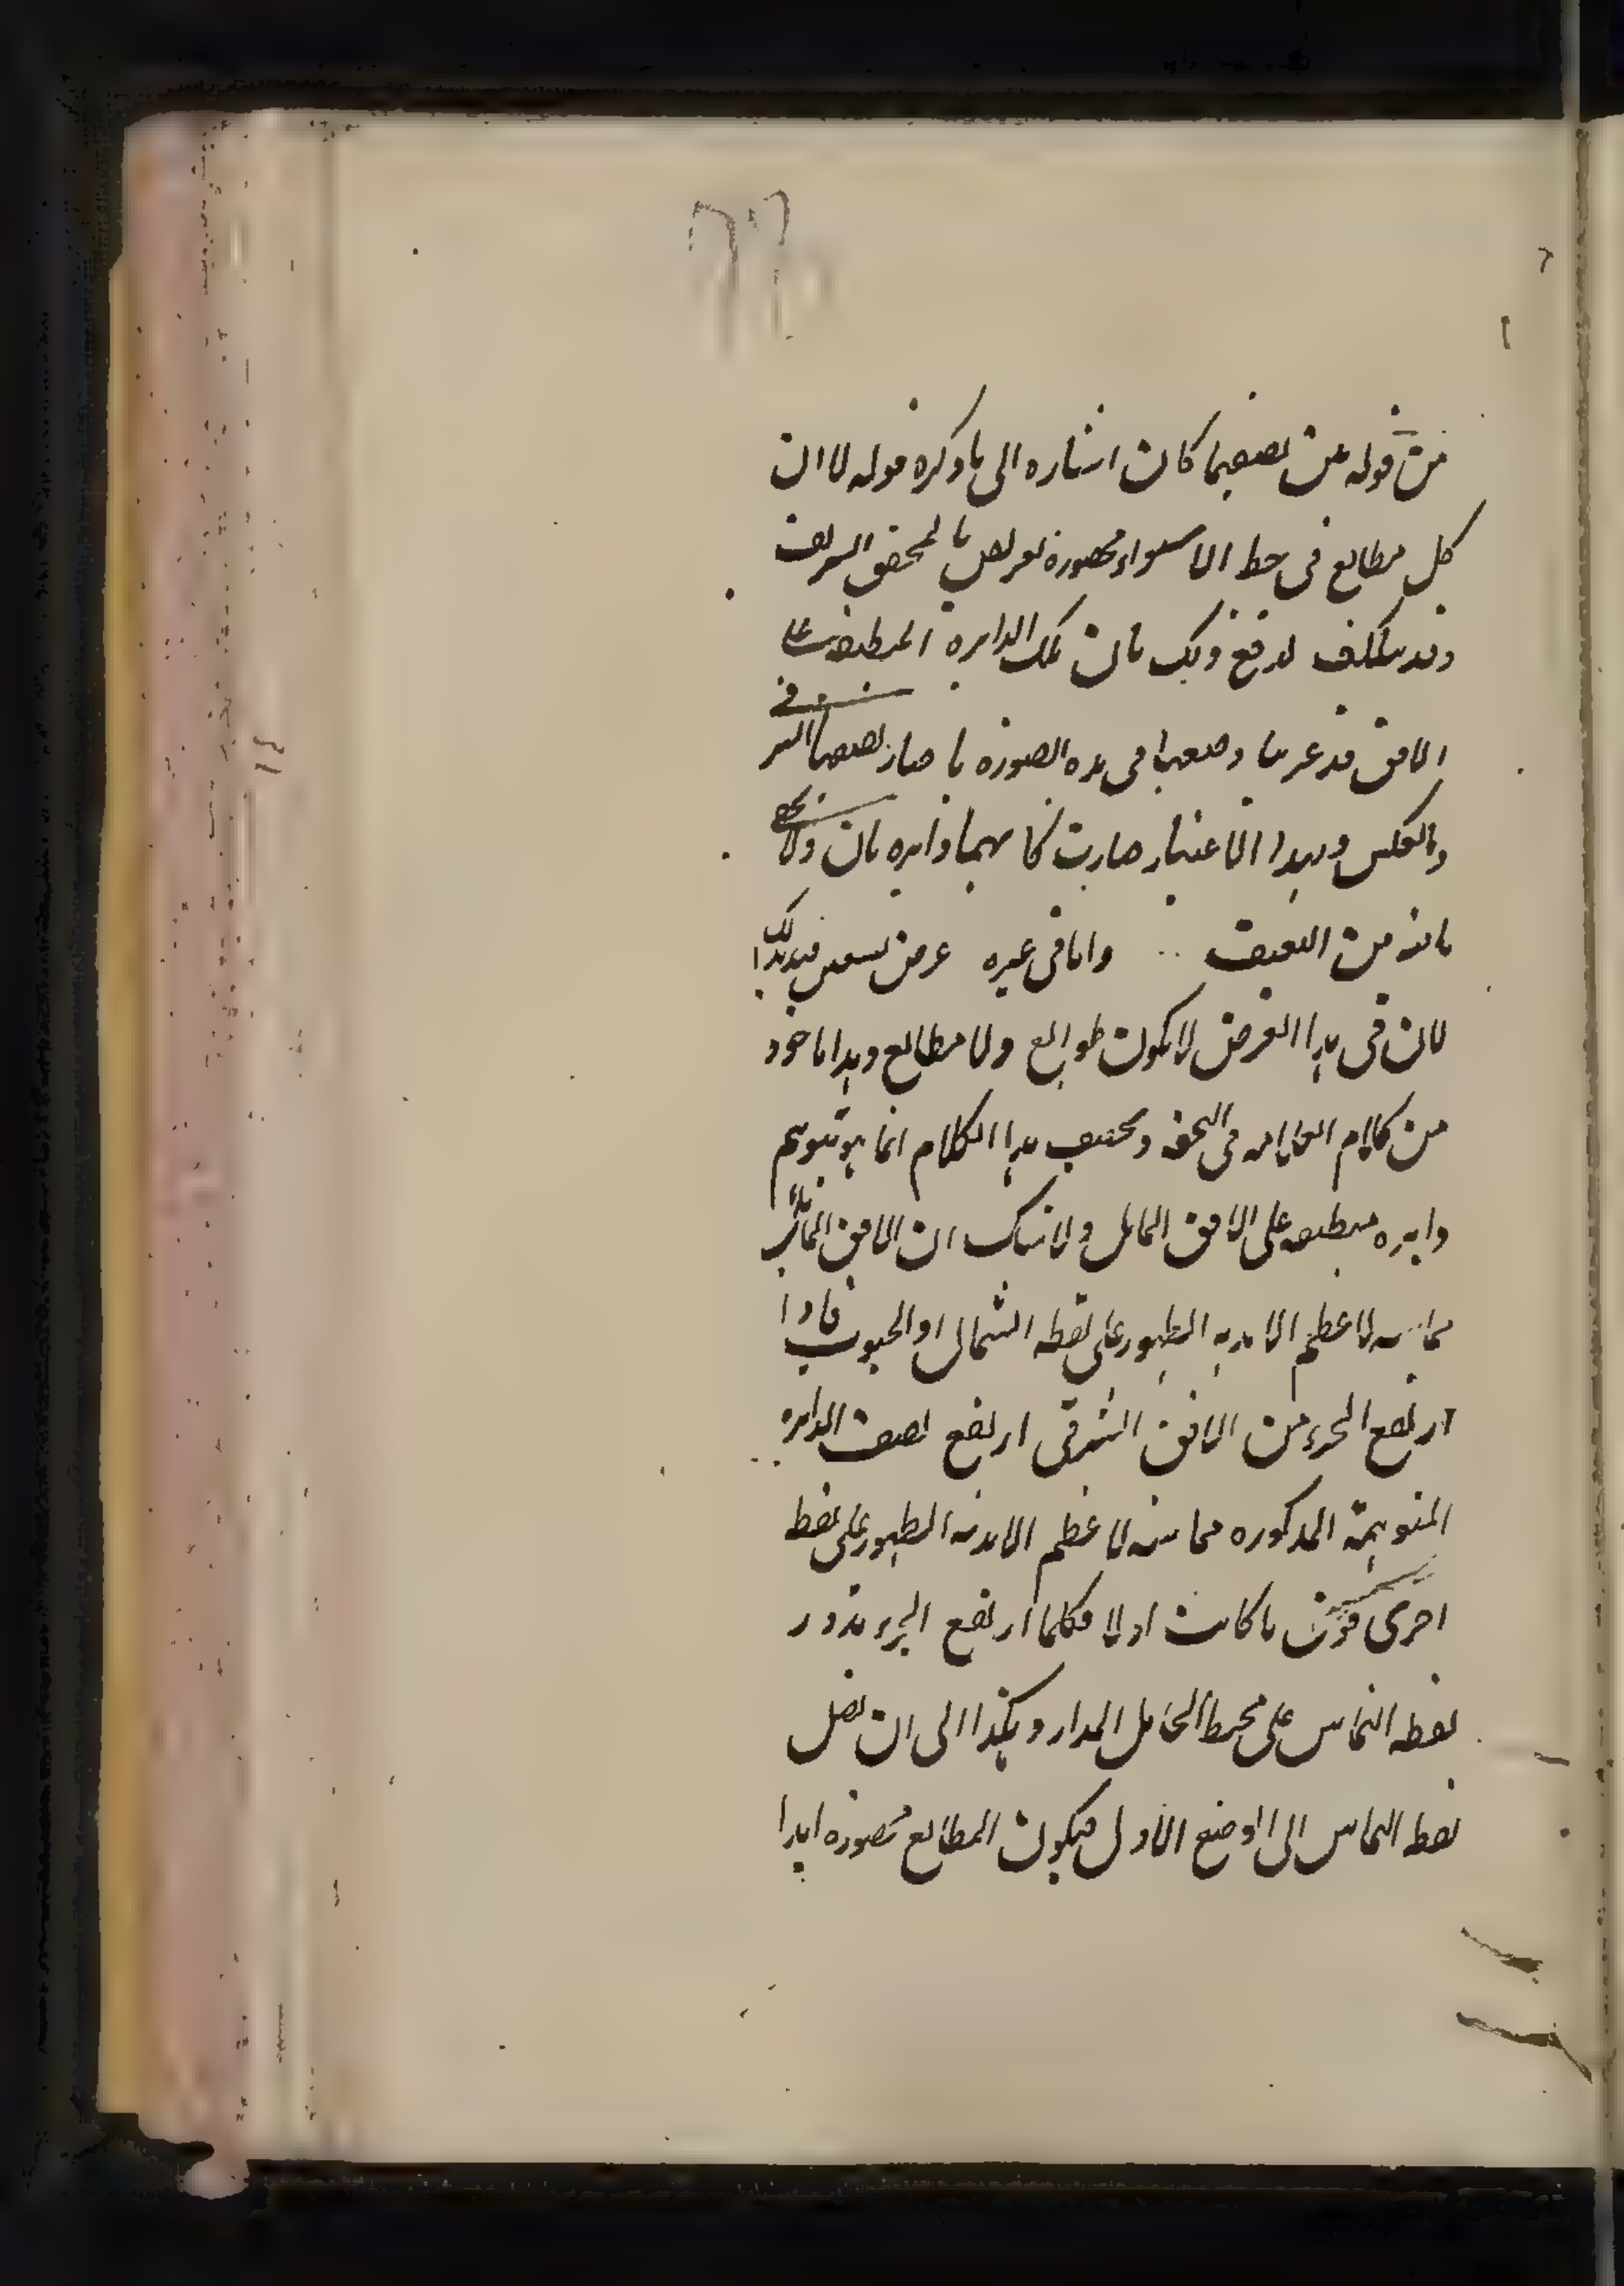 من قوله من نصفيها كان اشاره الى ما ذكره قوله لا ان
كل مطالع فى خط الاستواء متصورة تعريض بالمحقق الشريف
وقد يتكلف لدفع ذلك بان تلك الدايرة المنطبقة على
الافق قد عرفنا وضعها فى هذه الصورة ما صار نصفها الشر فى
وبالعكس وبهذا الاعتبار صارت كانها دايره بان ولا يخفى
ما فيه من التعسف واما فى غيره عرض تسعين فبدلك
لان فى هذا العرض لا يكون طوالع ولا مطالع وهذا ماخوذ
من كلام العلامه فى التحفه وتحقيق هذا الكلام انما هو بتوهم
دايره منطبقه على الافق المايل ولا شك ان الافق المايل
مماسه لاعظم الابديه الظهور على نقطه الشمال او الجنوب فاذا
ارتفع الجزء من الافق الشرقى ارتفع نصف الدايره
المتوهمة المذكوره مماسه لاعظم الابديه الظهور على نقط
اخرى فوق ما كانت اولا فكلما ارتفع الجزء تدور
نقطه التماس على محيط الحامل المدار وهكذا الى ان تصل
نقط التماس الى الوضع الاول فيكون المطالع متصوره ابدا